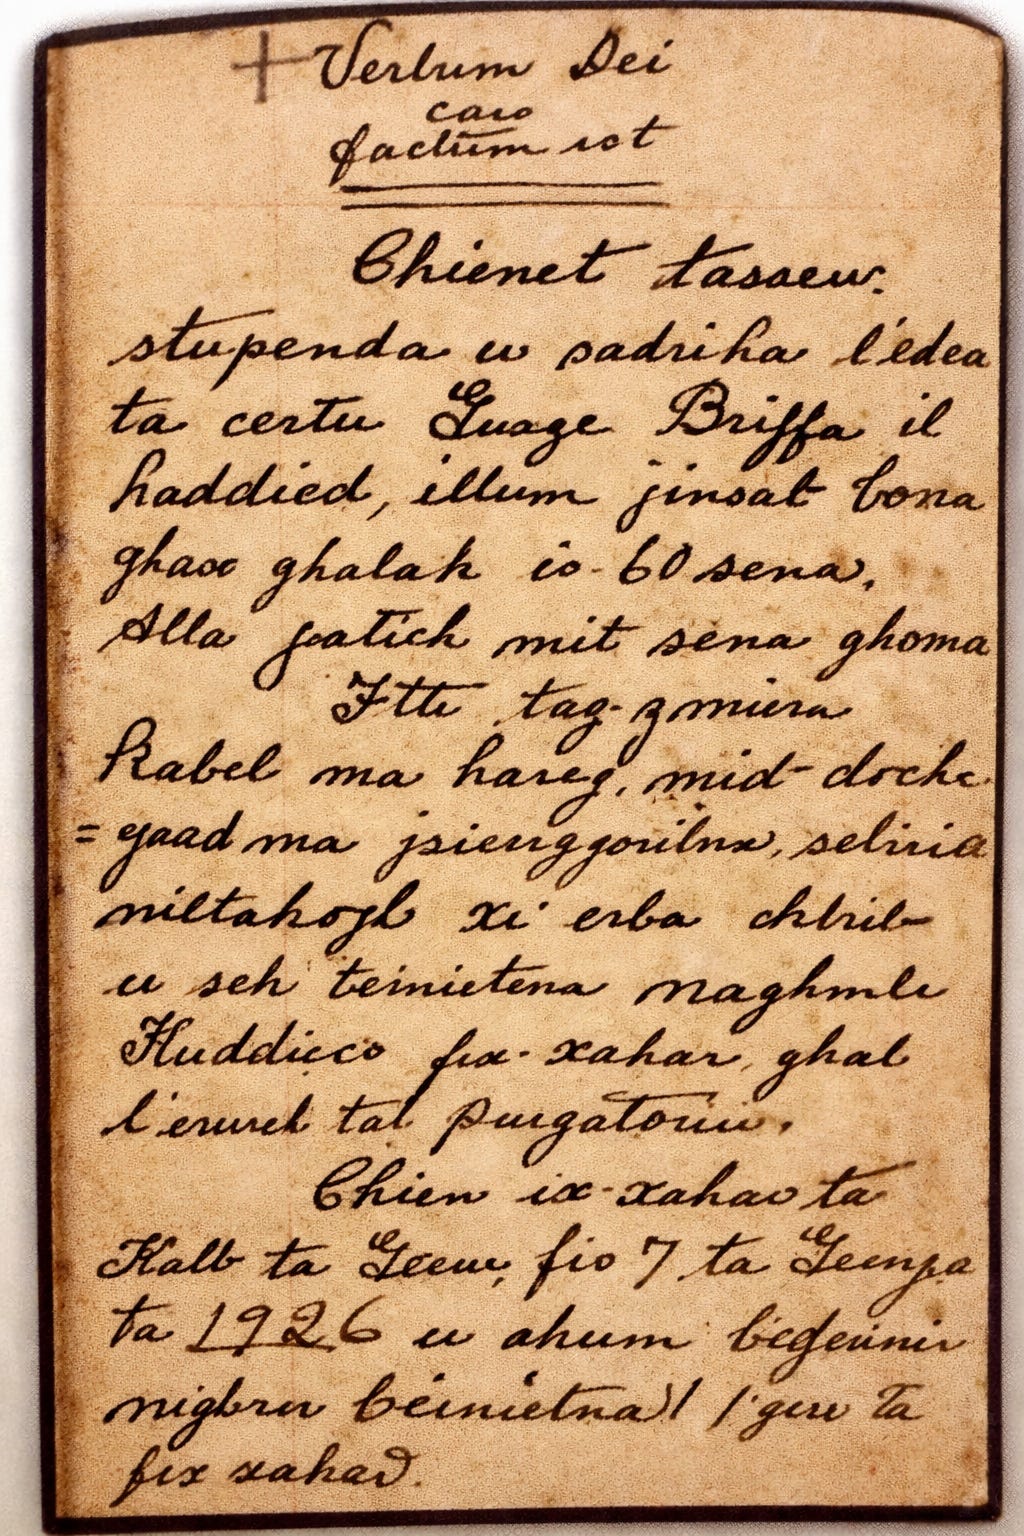 + Verbum Dei
caro
factum est
Chienet tassew
stupenda u sadriha l'edea
ta certu Guage Briffa il
haddied, illum jinsab bona
ghax ghalak is-60 sena,
Alla jatich mit sena ghoma
Ftti tag-zmiera
Kabel ma hareg, mid-docke
=gaad ma, seliria
niltahogh xi erba chbib
u seh teinietena naghmlu
Huddicco fix-xahar, ghal
l'erwieh tal Purgatoriu.
Chien ix-xahar ta
Kalb ta Gesu, fis 7 ta Geunja
ta 1926 u ahum
l'gere ta
fix xahar